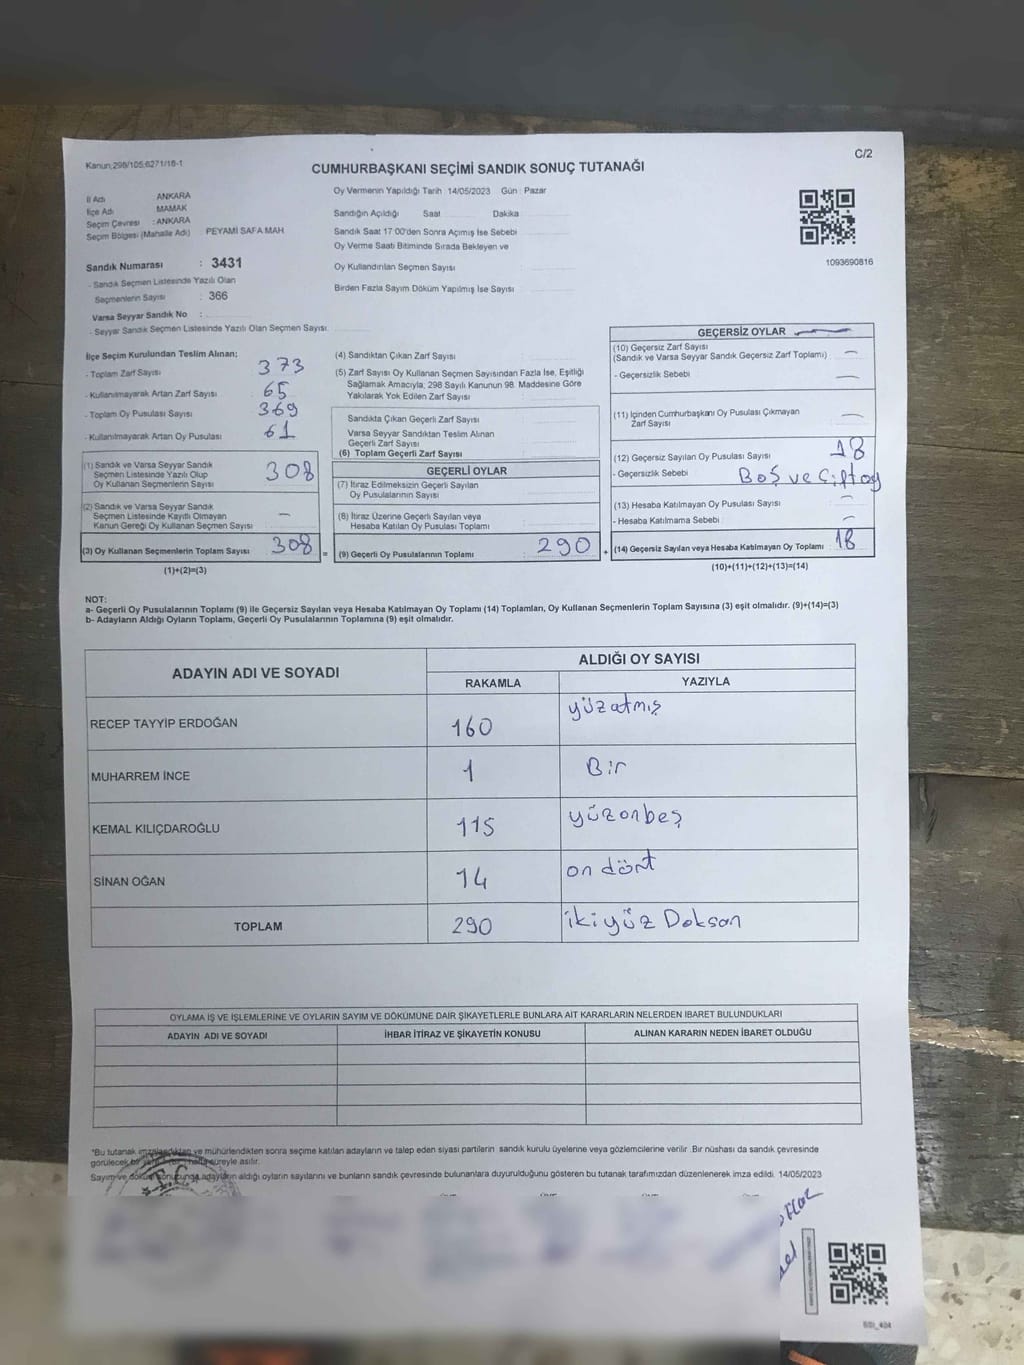 Kanun;298/105;6271/18-1
C/2
CUMHURBAŞKANI SEÇİMİ SANDIK SONUÇ TUTANAĞI
İl Adı ANKARA
İlçe Adı MAMAK
Seçim Çevresi : ANKARA
Seçim Bölgesi (Mahalle Adı) : PEYAMİ SAFA MAH
Sandık Numarası : 3431
- Sandık Seçmen Listesinde Yazılı Olan
Seçmenlerin Sayısı : 366
Varsa Seyyar Sandık No :
- Seyyar Sandık Seçmen Listesinde Yazılı Olan Seçmen Sayısı:
Oy Vermenin Yapıldığı Tarih : 14/05/2023 Gün : Pazar
Sandığın Açıldığı Saat Dakika
Sandık Saat 17 00'den Sonra Açımış İse Sebebi
Oy Verme Saati Bitiminde Sırada Bekleyen ve
Oy Kullandırılan Seçmen Sayısı
Birden Fazla Sayım Döküm Yapılmış İse Sayısı
1093690816
İlçe Seçim Kurulundan Teslim Alınan;
- Toplam Zarf Sayısı 373
- Kullanılmayarak Artan Zarf Sayısı 65
- Toplam Oy Pusulası Sayısı 369
- Kullanılmayarak Artan Oy Pusulası 61
(1) Sandık ve Varsa Seyyar Sandık
Seçmen Listesinde Yazılı Olup
Oy Kullanan Seçmenlerin Sayısı 308
(2) Sandık ve Varsa Seyyar Sandık
Seçmen Listesinde Kayıtlı Olmayan
Kanun Gereği Oy Kullanan Seçmen Sayısı —
(3) Oy Kullanan Seçmenlerin Toplam Sayısı 308 =
(1)+(2)=(3)
(4) Sandıktan Çıkan Zarf Sayısı
(5) Zarf Sayısı Oy Kullanan Seçmen Sayısından Fazla İse, Eşitliği
Sağlamak Amacıyla, 298 Sayılı Kanunun 98. Maddesine Göre
Yakılarak Yok Edilen Zarf Sayısı
Sandıkta Çıkan Geçerli Zarf Sayısı
Varsa Seyyar Sandıktan Teslim Alınan
Geçerli Zarf Sayısı
(6) Toplam Geçerli Zarf Sayısı
GEÇERLİ OYLAR
(7) İtiraz Edilmeksizin Geçerli Sayılan
Oy Pusulalarının Sayısı
(8) İtiraz Üzerine Geçerli Sayılan veya
Hesaba Katılan Oy Pusulası Toplamı
(9) Geçerli Oy Pusulalarının Toplamı 290 +
GEÇERSİZ OYLAR —
(10) Geçersiz Zarf Sayısı
(Sandık ve Varsa Seyyar Sandık Geçersiz Zarf Toplamı) —
- Geçersizlik Sebebi —
(11) İçinden Cumhurbaşkanı Oy Pusulası Çıkmayan
Zarf Sayısı —
(12) Geçersiz Sayılan Oy Pusulası Sayısı 18
- Geçersizlik Sebebi Boş ve Çift oy
(13) Hesaba Katılmayan Oy Pusulası Sayısı —
- Hesaba Katılmama Sebebi —
(14) Geçersiz Sayılan veya Hesaba Katılmayan Oy Toplamı 18
(10)+(11)+(12)+(13)=(14)
NOT:
a- Geçerli Oy Pusulalarının Toplamı (9) ile Geçersiz Sayılan veya Hesaba Katılmayan Oy Toplamı (14) Toplamları, Oy Kullanan Seçmenlerin Toplam Sayısına (3) eşit olmalıdır. (9)+(14)=(3)
b- Adayların Aldığı Oyların Toplamı, Geçerli Oy Pusulalarının Toplamına (9) eşit olmalıdır.
ADAYIN ADI VE SOYADI ALDIĞI OY SAYISI
RAKAMLA YAZIYLA
RECEP TAYYİP ERDOĞAN 160 yüzatmış
MUHARREM İNCE 1 Bir
KEMAL KILIÇDAROĞLU 115 yüzonbeş
SİNAN OĞAN 14 on dört
TOPLAM 290 ikiyüz Dokson
OYLAMA İŞ VE İŞLEMLERİNE VE OYLARIN SAYIM VE DÖKÜMÜNE DAİR ŞİKAYETLERLE BUNLARA AİT KARARLARIN NELERDEN İBARET BULUNDUKLARI
ADAYIN ADI VE SOYADI İHBAR İTİRAZ VE ŞİKAYETİN KONUSU ALINAN KARARIN NEDEN İBARET OLDUĞU
*Bu tutanak imzalandıktan ve mühürlendikten sonra seçime katılan adayların ve talep eden siyasi partilerin sandık kurulu üyelerine veya gözlemcilerine verilir .Bir nüshası da sandık çevresinde
görülecek bir yere süreyle asılır.
Sayım ve döküm sonucunda adayların aldığı oyların sayılarını ve bunların sandık çevresinde bulunanlara duyurulduğunu gösteren bu tutanak tarafımızdan düzenlenerek imza edildi. 14/05/2023
T.C.